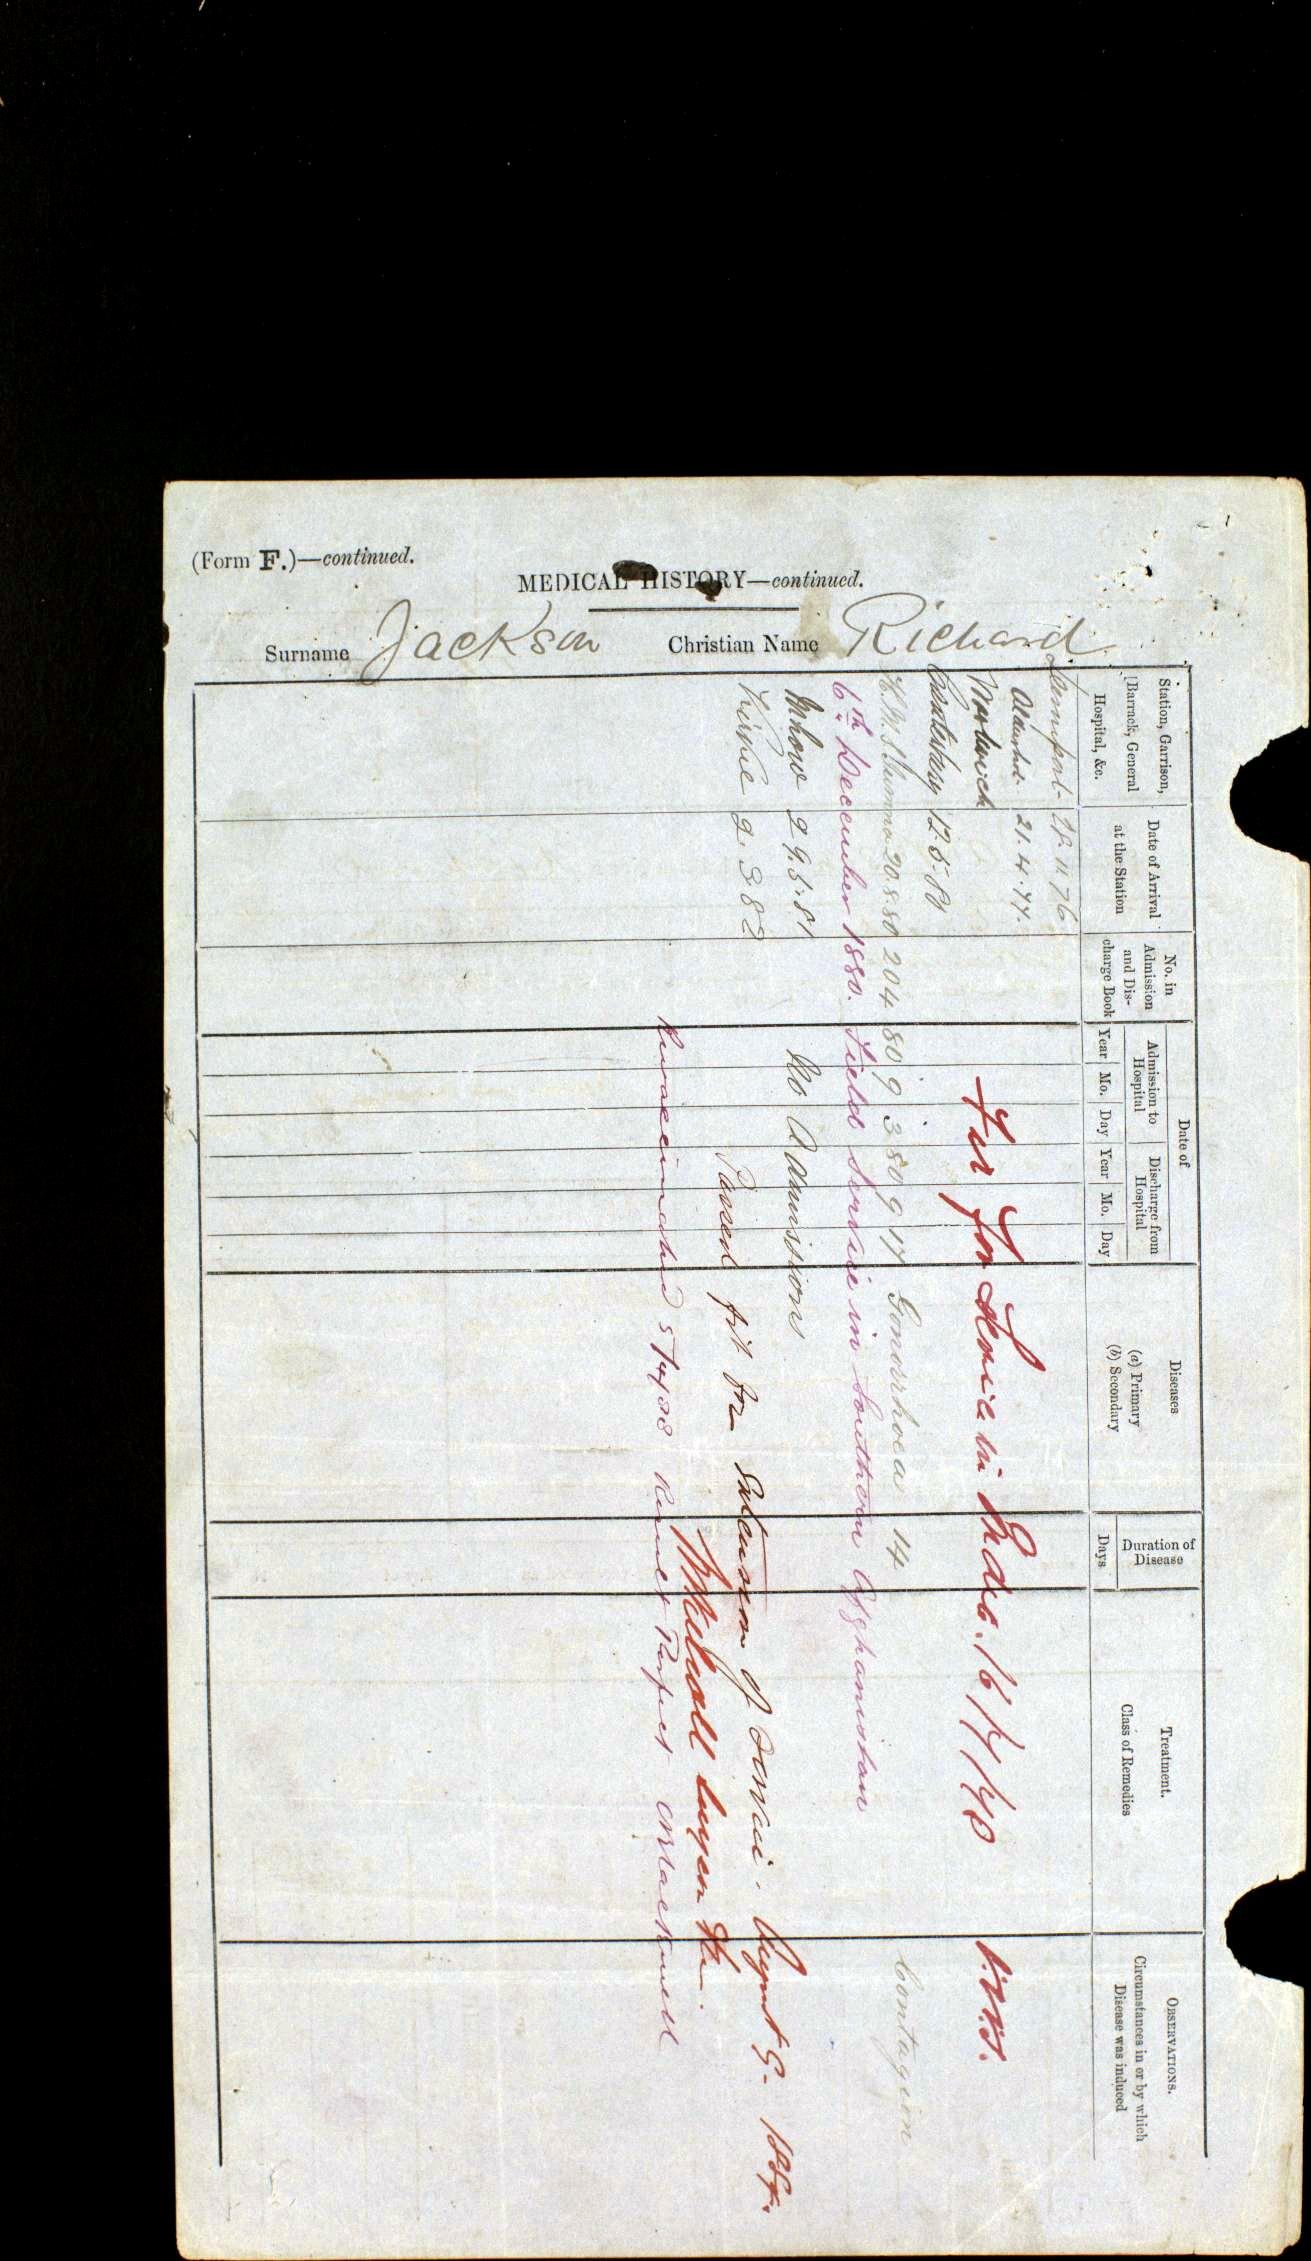 (Form F.)—continued.
MEDICAL HISTORY—continued.
Surname Jackson Christian Name Richard
Station, Garrison, [Barrack, General Hospital, &c.
Date of Arrival at the Station
No. in Admission and Discharge Book
Date of
Admission to Hospital
Discharge from Hospital
Year Mo. Day Year Mo. Day
Diseases
(a) Primary
(b) Secondary
Duration of Disease
Days
Treatment.
Class of Remedies
OBSERVATIONS.
Circumstances in or by which Disease was induced
28.11.76
21.4.77.
Woolwich
Fit for Service in India. 16/7/80
Canterbury 12.5.80
H.M.S. Jumna 20.8.80 204 80 9 3 80 9 17 Gonorrhoea 14 Contagion
6th December 1880. Field Service in Southern Afghanistan
Mhow 9.5.81 No Admissions
Kirkee 9.3.82
Passed fit for Extension of Service. August 5- 1884.
Revaccinated 5/4/88 Result Perfect